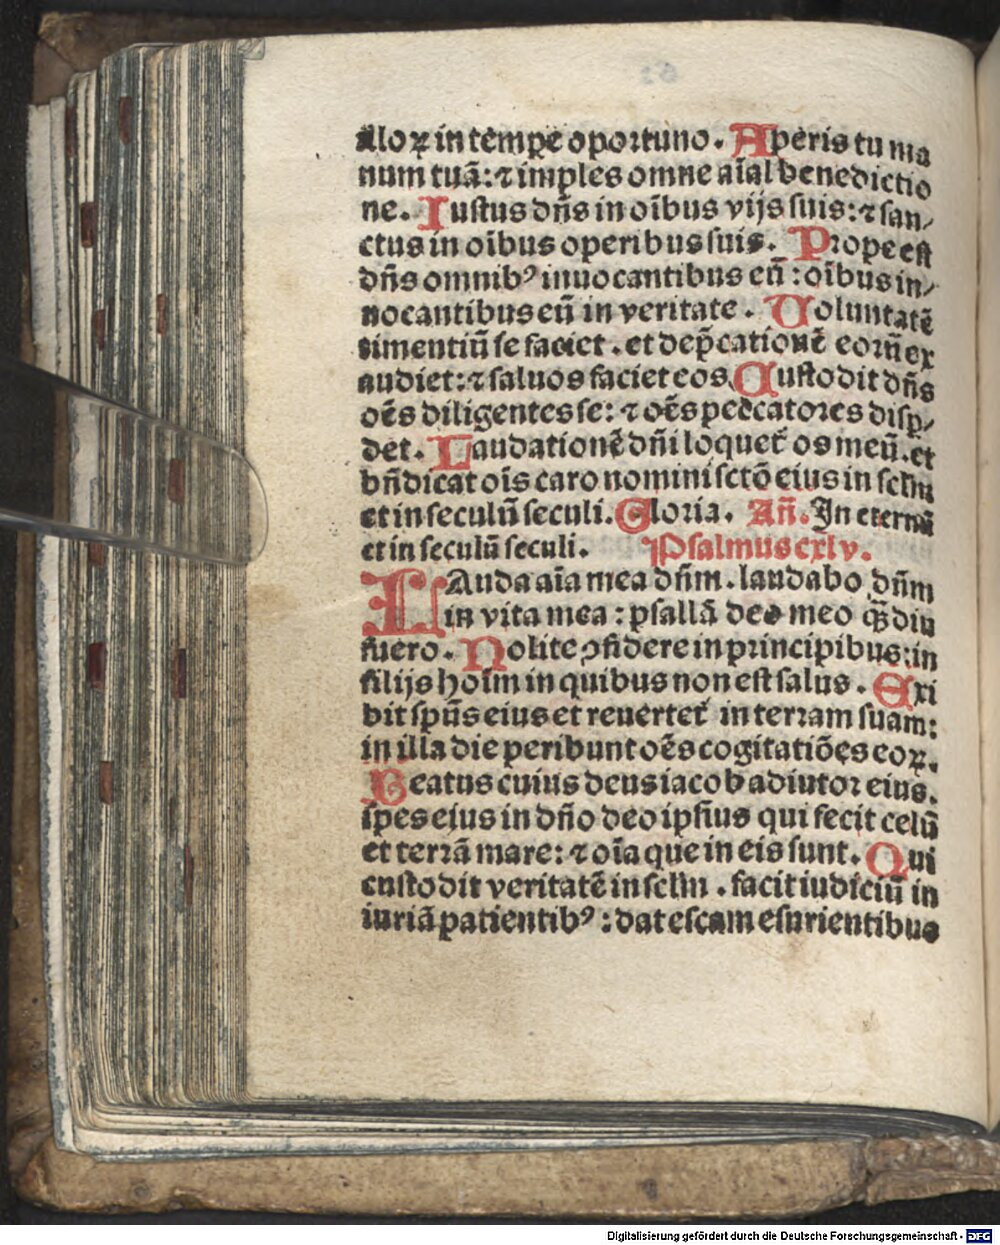 alloꝝ in tempe oportuno. Aperis tu ma
num tuã: ⁊ imples omne aĩal benedictio
ne. Iustus dñs in oĩbus vijs suis: ⁊ san-
ctus in oĩbus operibus suis. Prope est
dñs omnibꝰ inuocantibus eũ: oĩbus in-
uocantibus eũ in veritate. Voluntatẽ
timentiũ se faciet. et dep̃cationẽ eorũ ex
audiet: ⁊ saluos faciet eos. Custodit dñs
oẽs diligentes se: ⁊ oẽs peccatores disp-
det. Laudationẽ dñi loquet̃ os meũ. et
bñdicat oĩs caro nomini sctõ eius in sclm
et in seculũ seculi. Gloria. Añ. In eternũ
et in seculũ seculi. Psalmus cxlv.
LAuda aĩa mea dñm. laudabo dñm
in vita mea: psallã deo meo q̃diu
fuero. Nolite ꝯfidere in principibus: in
filijs hoĩm in quibus non est salus. Exi
bit spũs eius et reuertet̃ in terram suam:
in illa die peribunt oẽs cogitatiões eoꝝ.
Beatus cuius deus iacob adiutor eius.
spes eius in dño deo ipsius qui fecit celũ
et terrã mare: ⁊ oĩa que in eis sunt. Qui
custodit veritatẽ in sclm. facit iudiciũ in
iuriã patientibꝰ: dat escam esurientibus
Digitalisierung gefördert durch die Deutsche Forschungsgemeinschaft - DFG